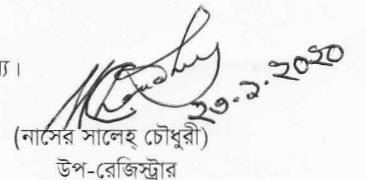 ২৩.২.২০২০
(নাসের সালেহ্ চৌধুরী)
উপ-রেজিস্ট্রার